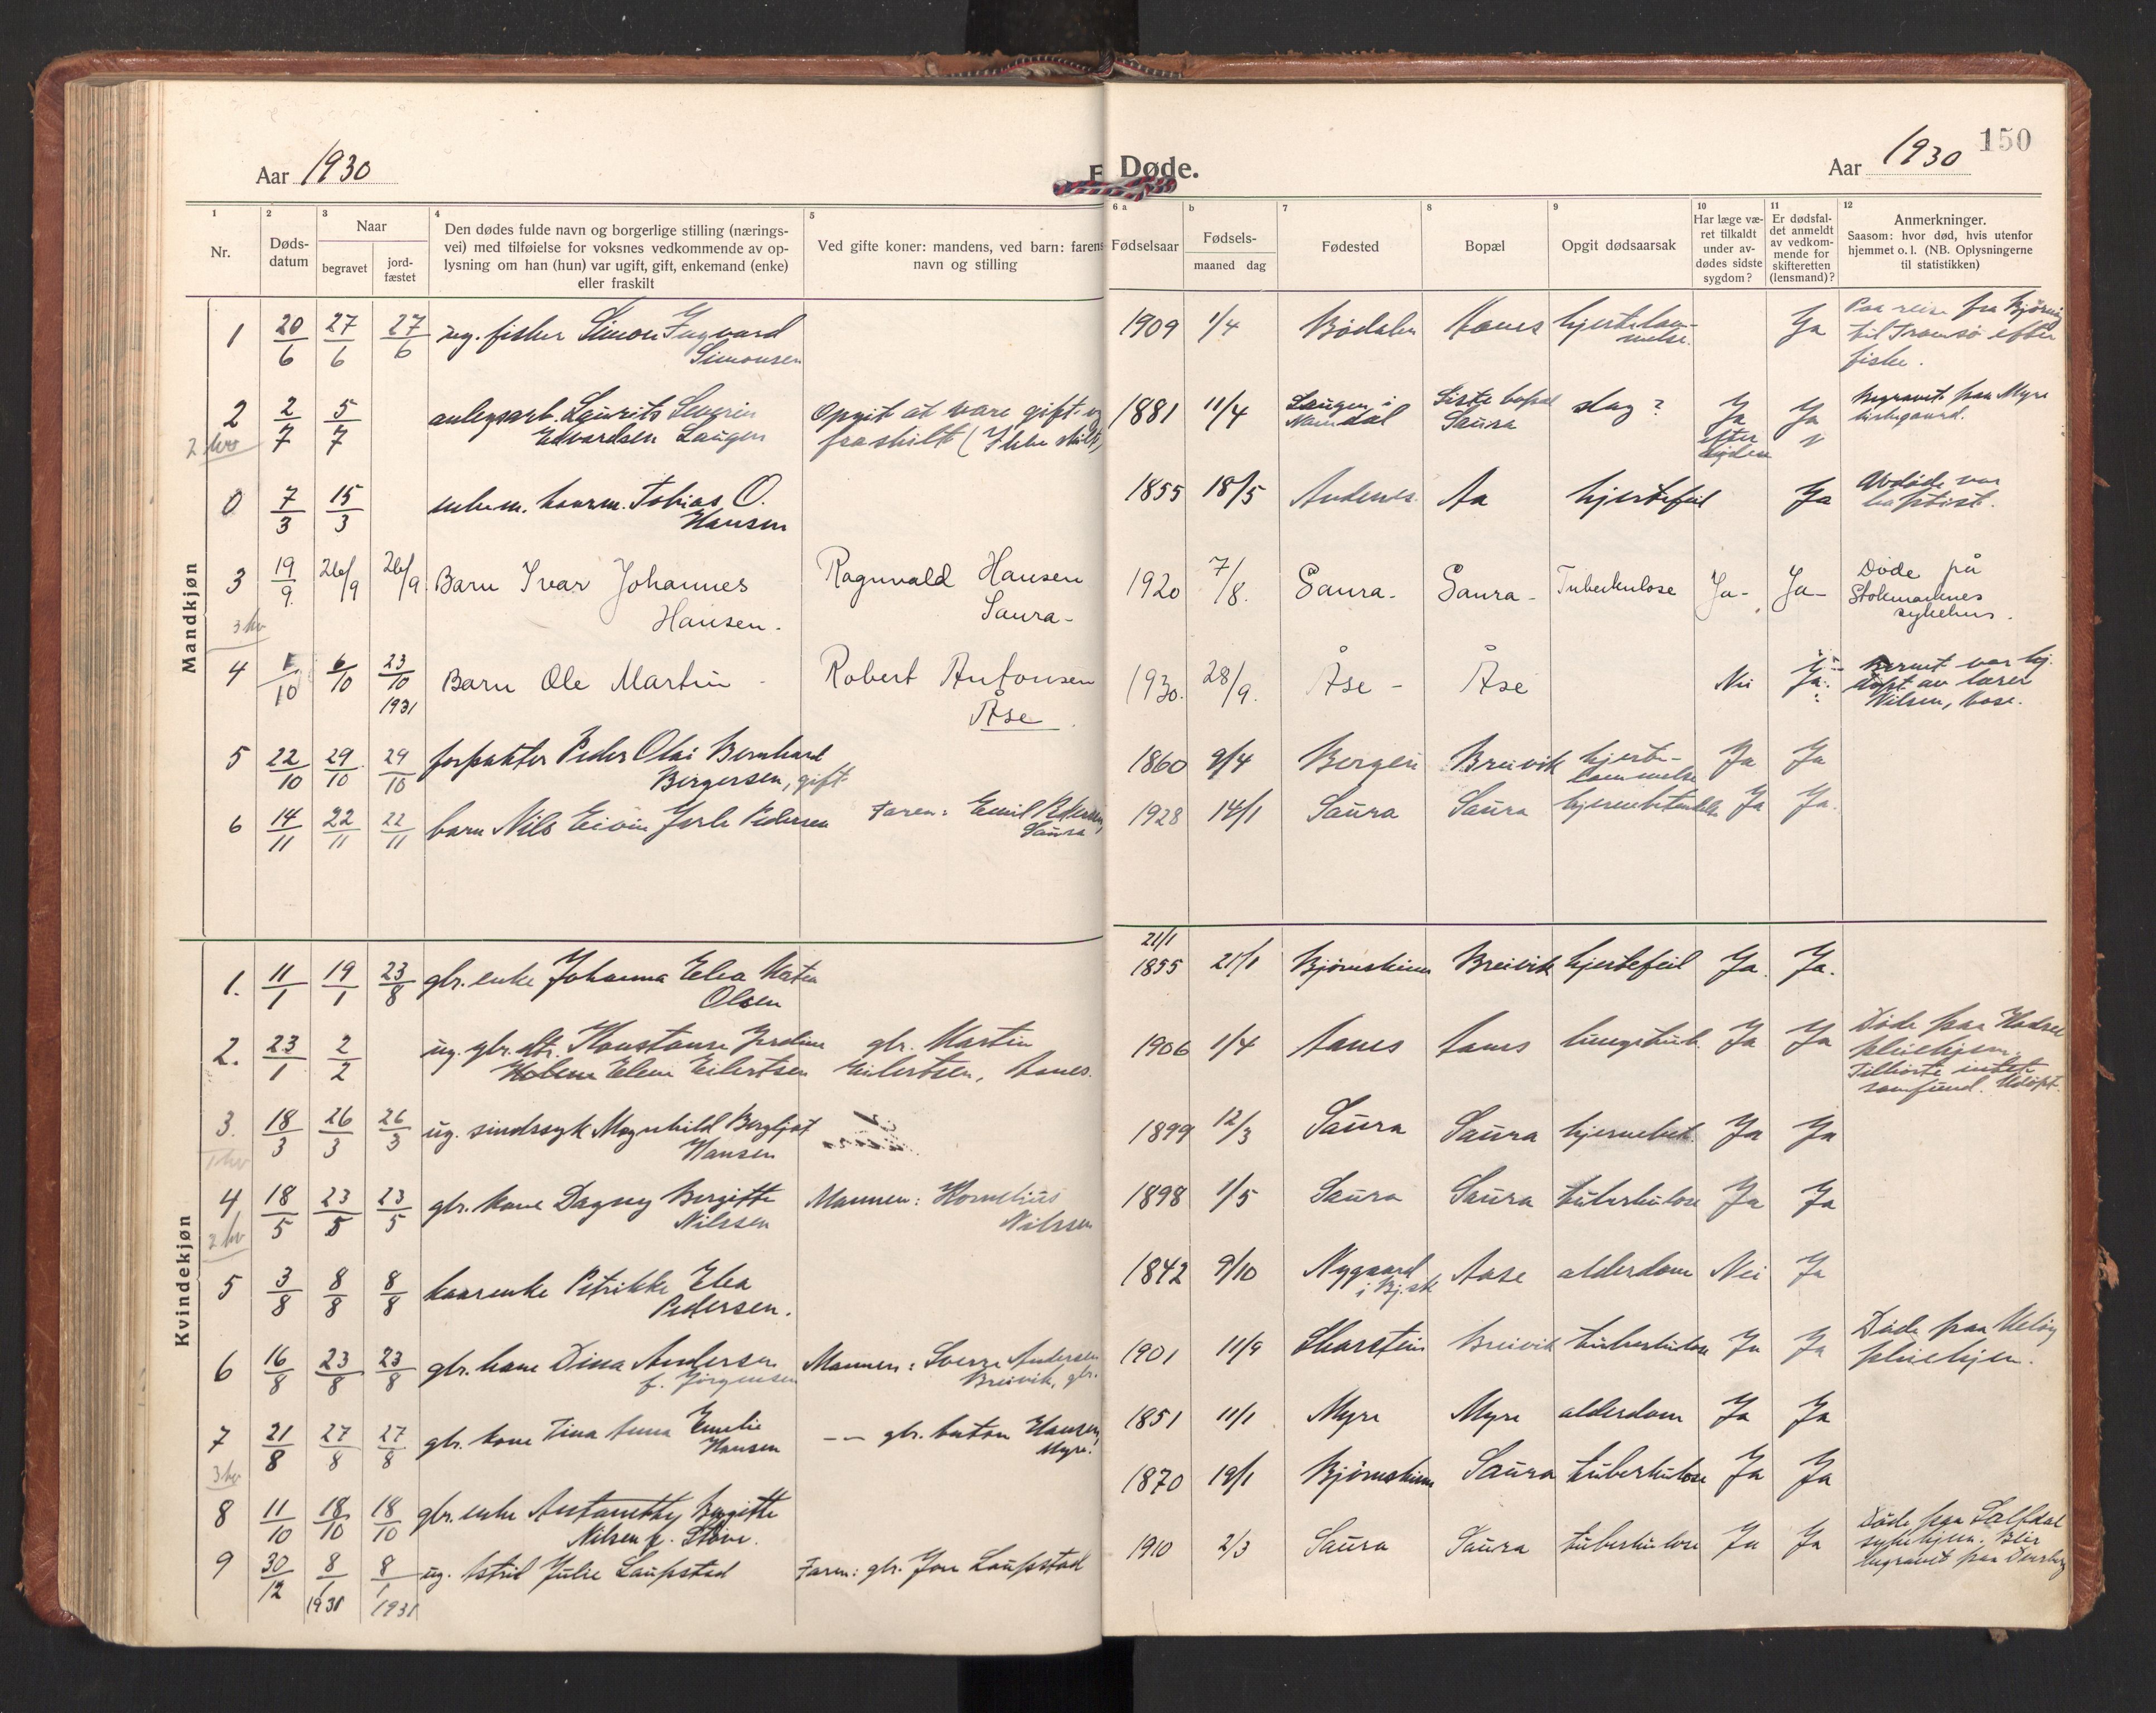 150
Aar 1930
E Døde.
Aar 1930
1
2
3
4
5
6 a
b
7
8
9
10
11
12
Nr.
Døds-
datum
Naar
begravet
jord-
fæstet
Den dødes fulde navn og borgerlige stilling (nærings-
vei) med tilføielse for voksnes vedkommende av op-
lysning om han (hun) var ugift, gift, enkemand (enke)
eller fraskilt
Ved gifte koner: mandens, ved barn: farens
navn og stilling
Fødselsaar
Fødsels-
maaned dag
Fødested
Bopæl
Opgit dødsaarsak
Har læge væ-
ret tilkaldt
under av-
dødes sidste
sygdom?
Er dødsfal-
det anmeldt
av vedkom-
mende for
skifteretten
(lensmand)?
Anmerkninger.
Saasom: hvor død, hvis utenfor
hjemmet o. l. (NB. Oplysningerne
til statistikken)
Mandkjøn
1 20/6 27/6 27/6 ug. fisker Simon Ingvard 1909 1/4 Bødalen Aanes hjertelam- Ja Paa reise fra Bjørnøy
Simonsen melse. til Tromsø efter
fiske.
2 2/7 5/7 anlegsarb. Laurits Severin Opgit at være gift og 1881 11/4 Laugen i Siste bopæl slag? Ja Ja Begravet paa Myre
Edvardsen Laugen fraskilt (Ikke skilt) Namdal Saura efter kirkegaard.
0 7/3 15/3 enkem. kaarm. Tobias O. 1855 18/5 Andenes Aa hjertefeil Ja Avdøde var
Hansen baptist.
3 19/9 26/9 26/9 Barn Ivar Johannes Ragnvald Hansen 1920 7/8. Saura- Saura- Tuberkulose Ja- Ja- Døde på
Hansen. Saura- Stokmarknes
sykehus.
4 1/10 6/10 23/10 1931 Barn Ole Martin - Robert Antonsen 1930. 28/9. Åse - Åse Nei Ja. Barnet var hj.
Åse døpt av lærer
Nilsen, Aase.
5 22/10 29/10 29/10 forpakter Peder Olai Bernhard 1860 9/4 Bergen Breivik hjerte- Ja Ja
Bergersen, gift lammelse
6 14/11 22/11 22/11 barn Nils Eivin Jarle Pedersen Faren: Emil Pedersen, 1928 14/1 Saura Saura Ja Ja.
Saura
Kvindekjøn
21/1
1. 11/1 19/1 23/8 gbr. enke Johanna Elea Katrin 1855 21/1 Bjørnskinn Breivik hjertefeil Ja. Ja.
Olsen
2. 23/1 2/2 ug. gbr. dtr. Konstanse Jordine gbr. Martin 1906 1/4 Aanes Aanes lungetub. Ja Ja Døde paa Hadsel
Elene Eilertsen Eilertsen, Aanes. pleiehjem.
Tilhørte intet
samfund. Udøpt.
3. 18/3 26/3 26/3 ug. sindssyk Magnhild Bergljot 1899 12/3 Saura Saura hjernebet. Ja Ja
Hansen
4 18/5 23/5 23/5 gbr. kone Dagny Bergitte Mannen: Kornelius 1898 1/5 Saura Saura tuberkulose Ja Ja
Nilssen Nilssen
5 3/8 8/8 8/8 kaarenke Petrikke Elea 1842 9/10 Nygaard Aase alderdom Nei Ja
Pedersen. i Bj.sk
6 16/8 23/8 23/8 gbr. kone Dina Andersen Mannen: Sverre Andersen 1901 11/9 Skarstein Breivik tuberkulose Ja Ja Døde paa Meløy
f. Jørgensen Breivik, gbr. pleiehjem.
7 21/8 27/8 27/8 gbr. kone Tina Anna Emelie -- gbr. Anton Hansen, 1851 11/1 Myre Myre alderdom Ja Ja
Hansen Myre.
8 11/10 18/10 18/10 gbr. enke Antonette Bergitte 1870 19/1 Bjørnskinn Saura tuberkulose Ja Ja
Nilsen f. Støve.
9 30/12 8/1 1931 8/1 1931 ug. Astrid Julie Laupstad Faren: gbr. Jon Laupstad 1910 2/3 Saura Saura tuberkulose Ja Ja Døde paa
sykehjem. Blev
begravet paa